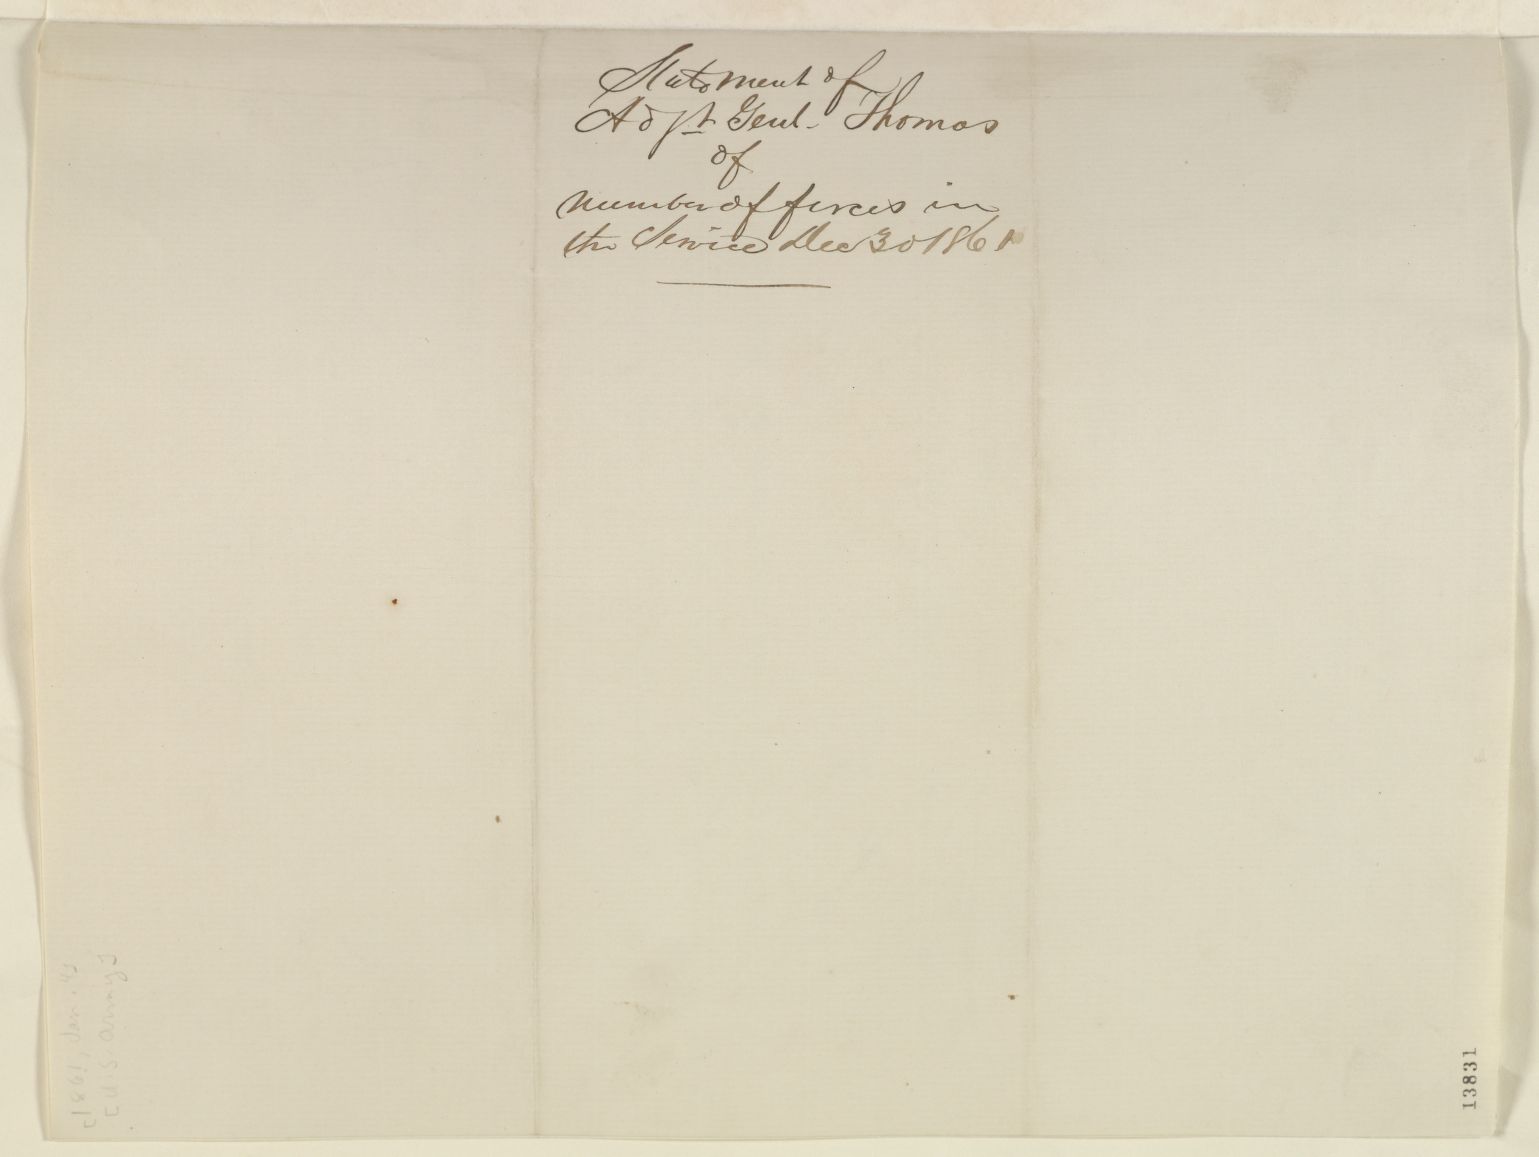 Statement of
Adjt Genl. Thomas
of
number of forces in
the Service Dec 30 1861
[1861, Jan. 4]
[U.S. Army]
13831